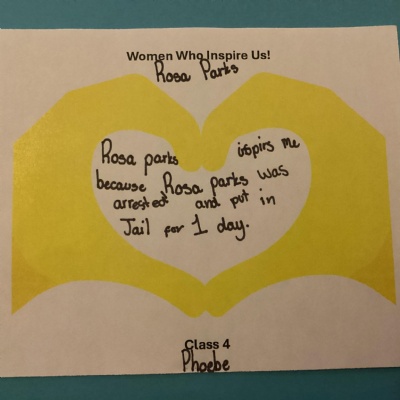 Women Who Inspire Us!
Rosa Parks
Rosa parks inspirs me
because Rosa parks was
arrested and put in
Jail for 1 day.
Class 4
Phoebe